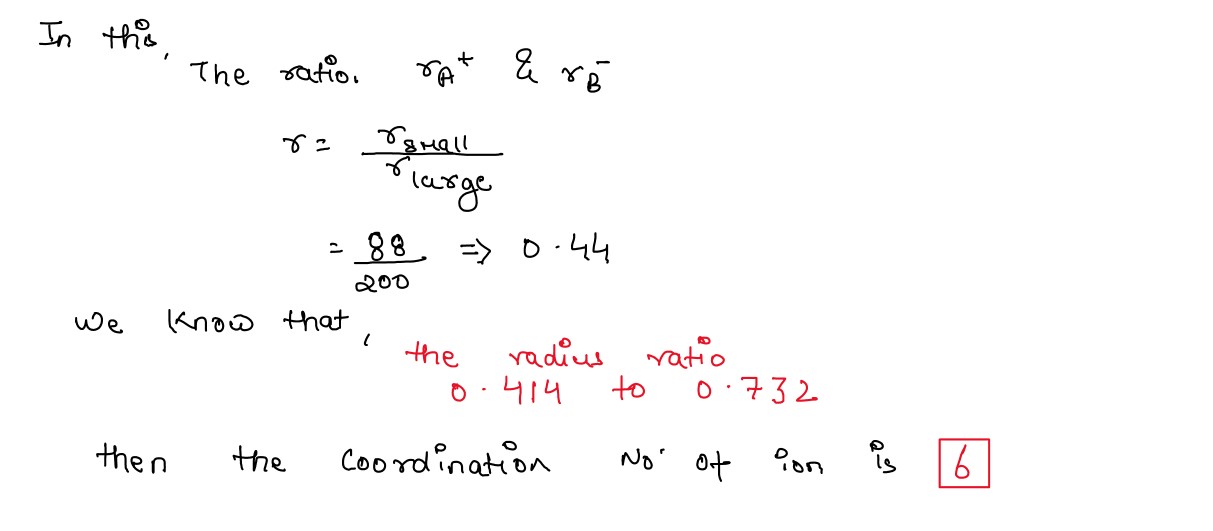 In this,
The ratio. rA⁺ & rB⁻
r = rsmall / rlarge
= 88 / 200 => 0.44
We Know that,
the radius ratio
0.414 to 0.732
then the coordination No. of ion is 6